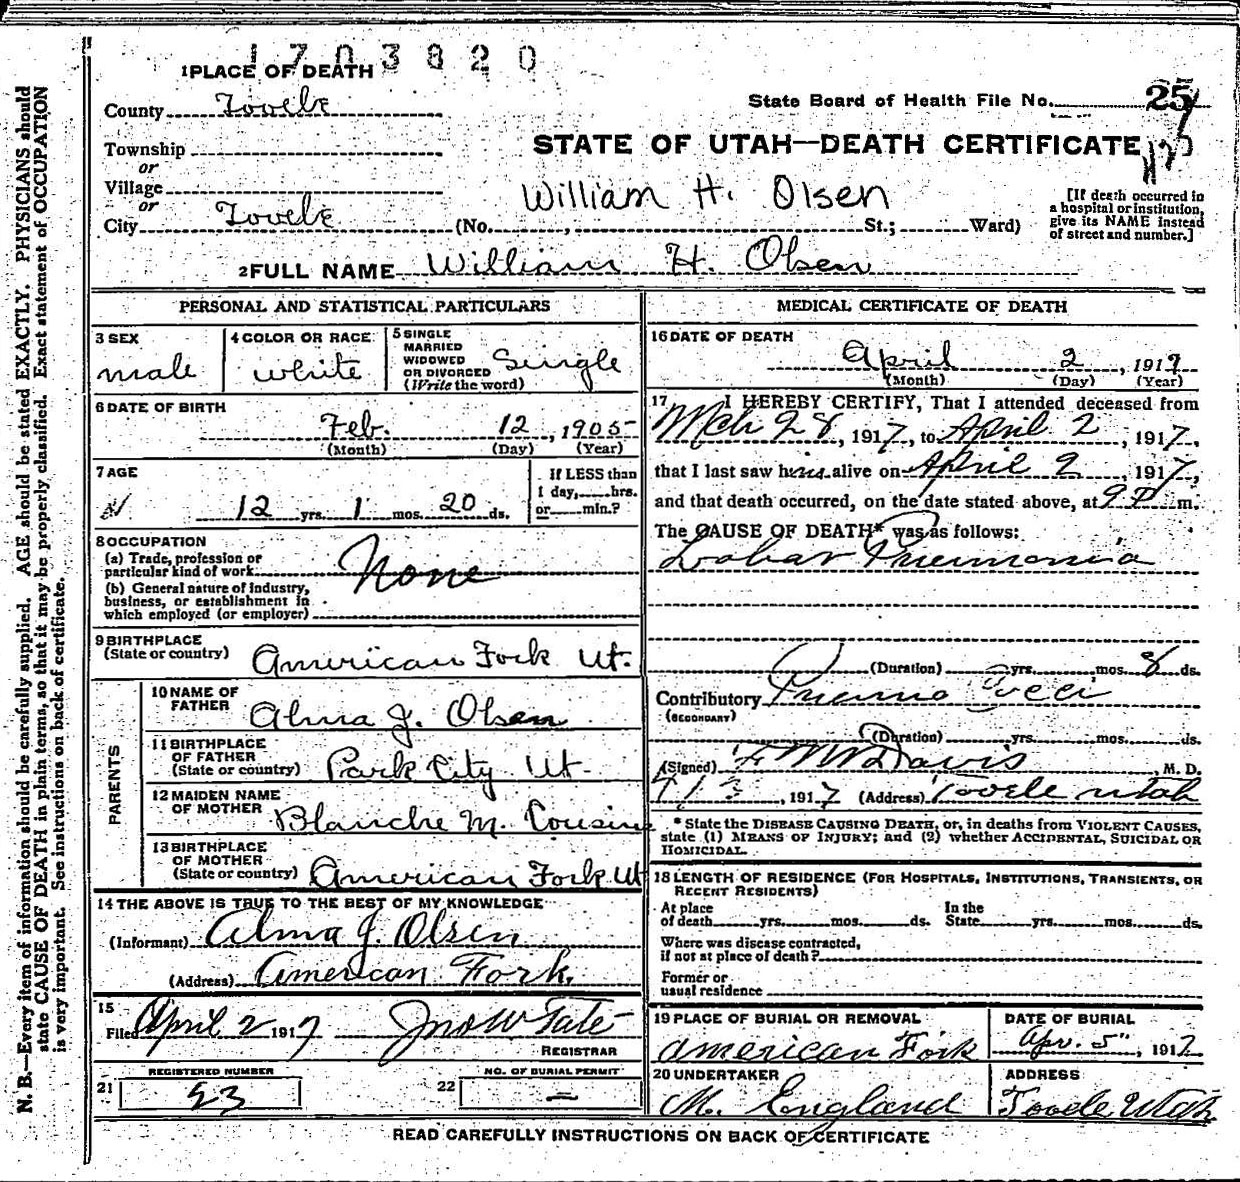 1703820
1 PLACE OF DEATH
County Tooele
State Board of Health File No. 25
Township
or
STATE OF UTAH—DEATH CERTIFICATE
Village
or
William H. Olsen
[If death occurred in a hospital or institution, give its NAME instead of street and number.]
City Tooele (No. , St.; Ward)
2 FULL NAME William H. Olsen
PERSONAL AND STATISTICAL PARTICULARS
3 SEX male
4 COLOR OR RACE white
5 SINGLE MARRIED WIDOWED OR DIVORCED (Write the word) Single
6 DATE OF BIRTH
Feb. 12, 1905
(Month) (Day) (Year)
7 AGE
12 yrs. 1 mos. 20 ds.
If LESS than 1 day, hrs. or min.?
8 OCCUPATION
(a) Trade, profession or particular kind of work None
(b) General nature of industry, business, or establishment in which employed (or employer)
9 BIRTHPLACE
(State or country) American Fork Ut.
PARENTS
10 NAME OF FATHER Alma J. Olsen
11 BIRTHPLACE OF FATHER (State or country) Park City Ut.
12 MAIDEN NAME OF MOTHER Blanche M. Cousins
13 BIRTHPLACE OF MOTHER (State or country) American Fork Ut
14 THE ABOVE IS TRUE TO THE BEST OF MY KNOWLEDGE
(Informant) Alma J. Olsen
(Address) American Fork.
15
Filed April 2 1917 Jno W Tate
REGISTRAR
REGISTERED NUMBER
21 23
NO. OF BURIAL PERMIT
22 —
MEDICAL CERTIFICATE OF DEATH
16 DATE OF DEATH
April 2, 1917
(Month) (Day) (Year)
17 I HEREBY CERTIFY, That I attended deceased from
Mch 28, 1917, to April 2, 1917,
that I last saw him alive on April 2, 1917,
and that death occurred, on the date stated above, at 9 P m.
The CAUSE OF DEATH* was as follows:
Lobar Pneumonia
(Duration) yrs. mos. 8 ds.
Contributory
(SECONDARY)
(Duration) yrs. mos. ds.
(Signed) F M Davis, M. D.
, 1917 (Address) Tooele Utah
* State the DISEASE CAUSING DEATH, or, in deaths from VIOLENT CAUSES,
state (1) MEANS OF INJURY; and (2) whether ACCIDENTAL, SUICIDAL OR
HOMICIDAL.
18 LENGTH OF RESIDENCE (FOR HOSPITALS, INSTITUTIONS, TRANSIENTS, OR
RECENT RESIDENTS)
At place of death yrs. mos. ds. In the State yrs. mos. ds.
Where was disease contracted,
if not at place of death?
Former or
usual residence
19 PLACE OF BURIAL OR REMOVAL
American Fork
DATE OF BURIAL
Apr. 5", 1917
20 UNDERTAKER
M. England
ADDRESS
Tooele Utah
READ CAREFULLY INSTRUCTIONS ON BACK OF CERTIFICATE
N. B.—Every item of information should be carefully supplied. AGE should be stated EXACTLY. PHYSICIANS should
state CAUSE OF DEATH in plain terms, so that it may be properly classified. Exact statement of OCCUPATION
is very important. See instructions on back of certificate.